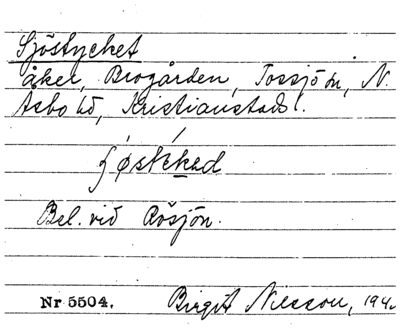 Sjöstycket
åker, Brogården, Tossjön, N.
Åsbo hd, Kristianstads l.
Bel. vid Rösjön.
Nr 5504. Birgit Nilsson, 194